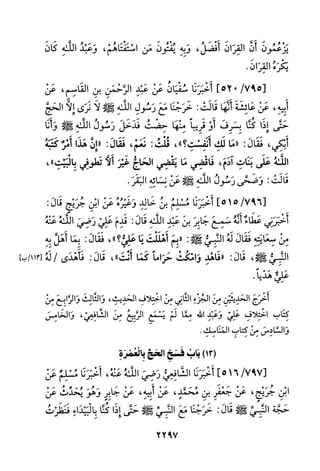 يَزْعُمُونَ أَنَّ القِرَانَ أَفْضَلُ، وَبِهِ يُفْتُونَ مَن اسْتَفْتَاهُمْ، وَعَبْدُ اللهِ كَانَ
يَكْرَهُ القِرَانَ.
[٥٢٠/٧٩٥] أَخْبَرَنَا سُفْيَانُ عَنْ عَبْدِ الرَّحْمنِ بنِ القَاسِمِ، عَنْ
أَبِيهِ، عَنْ عَائِشَةَ أَنَّهَا قَالَتْ: خَرَجْنَا مَعَ رَسُولِ اللهِ ﷺ لَا نَرَى إِلَّا الحَجَّ
حَتَّى إِذَا كُنَّا بِسَرِفَ أَوْ قَرِيباً مِنْهَا حِضْتُ فَدَخَلَ رَسُولُ اللهِ ﷺ وَأَنَا
أَبْكِي، فَقَالَ: «مَا لَكِ أَنَفِسْتِ؟»، قُلْتُ: نَعَمْ، فَقَالَ: «إِنَّ هَذَا أَمْرٌ كَتَبَهُ
اللهُ عَلَى بَنَاتِ آدَمَ، فَاقْضِي مَا يَقْضِي الحَاجُّ غَيْرَ أَلَّا تَطُوفِي بِالْبَيْتِ»،
قَالَتْ: وَضَحَّى رَسُولُ اللهِ ﷺ عَنْ نِسَائِهِ البَقَرَ.
[٥١٥/٧٩٦] أَخْبَرَنَا مُسْلِمُ بنُ خَالِدٍ وَغَيْرُهُ عَنْ ابْنِ جُرَيْجٍ، قَالَ:
أَخْبَرَنِي عَطَاءٌ أَنَّهُ سَمِعَ جَابِرَ بنَ عَبْدِ اللهِ قَالَ: قَدِمَ عَلِيٌّ رَضِيَ اللهُ عَنْهُ
مِنْ سِعَايَتِهِ فَقَالَ لَهُ النَّبِيُّ ﷺ: «بِمَ أَهْلَلْتَ يَا عَلِيُّ؟»، فَقَالَ: بِمَا أَهَلَّ بِهِ
النَّبِيُّ ﷺ، قَالَ: «فَاهْدِ وَامْكُثْ حَرَاماً كَمَا أَنْتَ»، قَالَ: فَأَهْدَى لَهُ/ [١١٣/ب]
عَلِيٌّ هَدْياً.
أَخْرَجَ الْحَدِيثَيْنِ مِنَ الْجُزْءِ الثَّانِي مِنِ اخْتِلَافِ الحَدِيثِ، وَالثَّالِثَ وَالرَّابِعَ مِنْ
كتاب اخْتِلَافِ عَلِيٍّ وَعَبْدِ الله مِمَّا لَمْ يَسْمَعِ الرَّبِيعُ مِنَ الشَّافِعِيِّ، وَالخَامِسَ
وَالسَّادِسَ مِنْ كِتَابِ المَنَاسِكِ.
(١٣) بَابُ فَسْخِ الحَجِّ بِالْعُمْرَةِ
[٥١٦/٧٩٧] أَخْبَرَنَا الشَّافِعِيُّ رَضِيَ اللهُ عَنْهُ، أَخْبَرَنَا مُسْلِمٌ عَنْ
ابْنِ جُرَيْجٍ، عَنْ جَعْفَرِ بنِ مُحَمَّدٍ، عَنْ أَبِيهِ، عَنْ جَابِرٍ وَهُوَ يُحَدِّثُ عَنْ
حَجَّةِ النَّبِيِّ ﷺ قَالَ: خَرَجْنَا مَعَ النَّبِيِّ ﷺ حَتَّى إِذَا كُنَّا بِالْبَيْدَاءِ فَنَظَرْتُ
٢٢٩٧